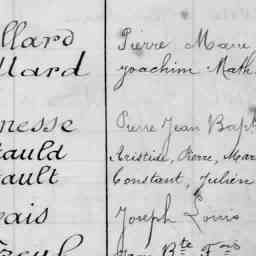 llard Pierre Marie
llard Joachim Math
nesse Pierre Jean Bapt
tauld Aristide, Pierre, Mar
tault Constant, Julien
vais Joseph Louis
Jean Bte Fois